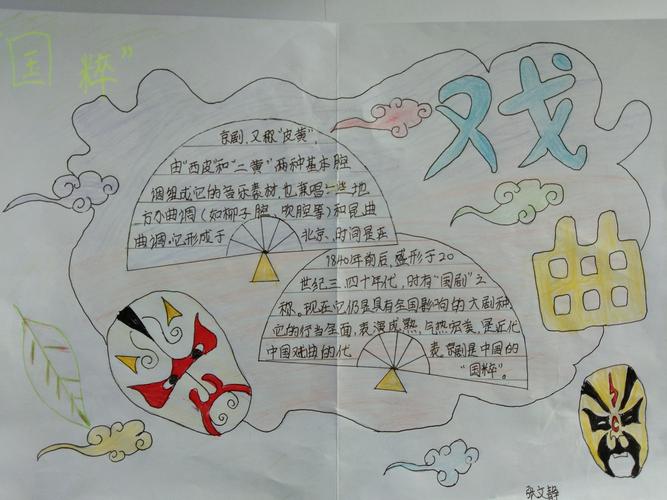 "国粹"
戏曲
京剧，又称"皮黄"，
由"西皮"和"二黄"两种基本腔
调组成它的音乐素材，也兼唱一些地
方小曲调（如柳子腔，吹腔等）和昆曲
曲调。它形成于北京，时间是在
1840年前后，盛形于20
世纪三、四十年代，时有"国剧"之
称。现在它仍是具有全国影响的大剧种，
它的行当全面，表演成熟，气势宏美，是近代
中国戏曲的代表。京剧是中国的
"国粹"。
张文静